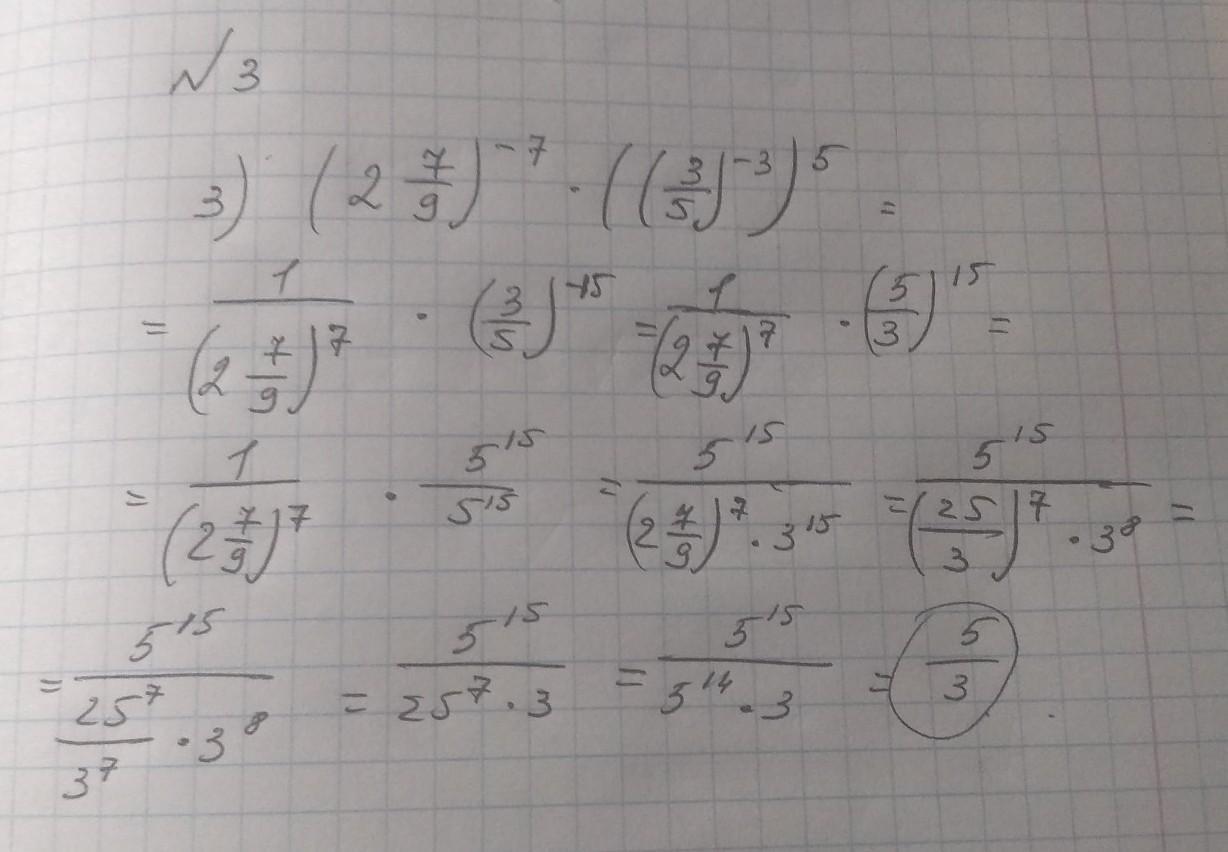 № 3
3) (2 7/9)^-7 · ((3/5)^-3)^5 =
= 1/(2 7/9)^7 · (3/5)^-15 = 1/(2 7/9)^7 · (5/3)^15 =
= 1/(2 7/9)^7 · 5^15/5^15 = 5^15/((2 7/9)^7 · 3^15) = 5^15/((25/3)^7 · 3^8) =
= 5^15/(25^7/3^7 · 3^8) = 5^15/(25^7 · 3) = 5^15/(5^14 · 3) = 5/3